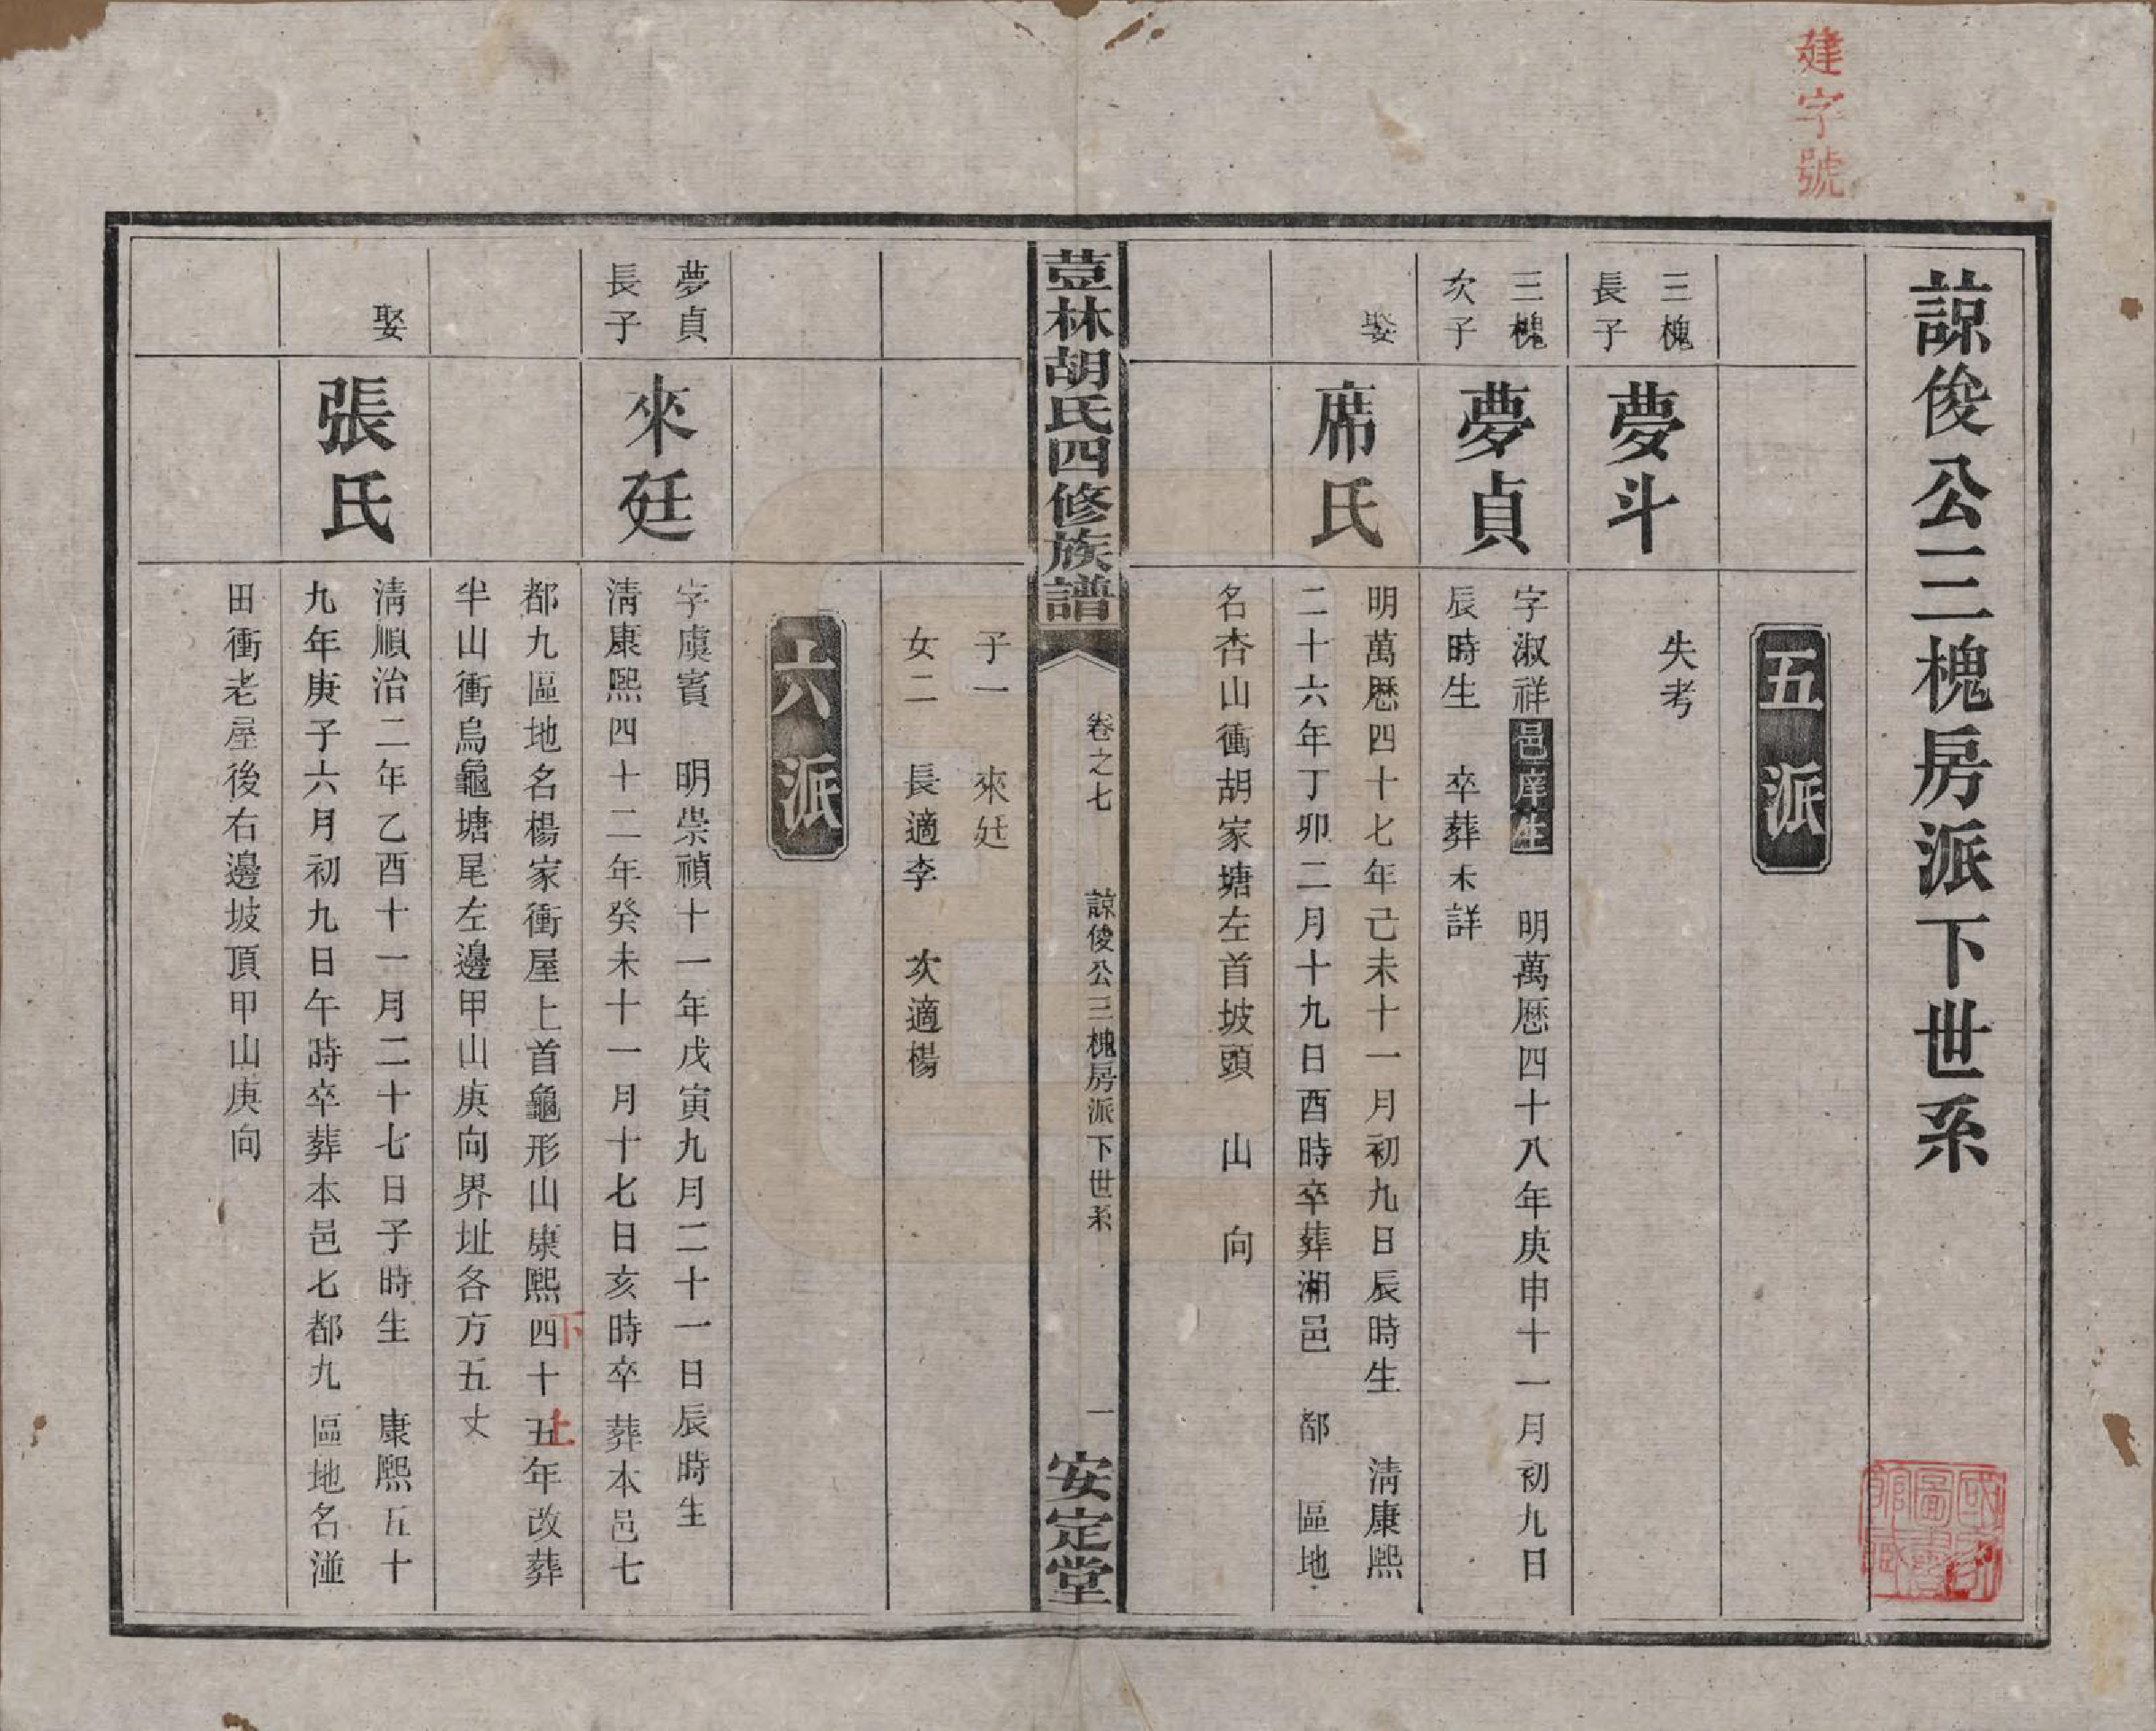 建字號
諒俊公三槐房派下世系
五派
三槐
長子
夢斗
失考
三槐
次子
夢貞
字淑祥邑庠生 明萬厯四十八年庚申十一月初九日
辰時生 卒葬未詳
娶
席氏
明萬厯四十七年己未十一月初九日辰時生 清康熙
二十六年丁卯二月十九日酉時卒葬湘邑 都 區地
名杏山衝胡家塘左首坡頭 山 向
荳林胡氏四修族譜
卷之七
諒俊公三槐房派下世系
一
安定堂
子一 來廷
女二 長適李 次適楊
六派
夢貞
長子
來廷
字虞賓 明崇禎十一年戊寅九月二十一日辰時生
清康熙四十二年癸未十一月十七日亥時卒葬本邑七
都九區地名楊家衝屋上首龜形山康熙四十五年改葬
下
上
半山衝烏龜塘尾左邊甲山庚向界址各方五丈
娶
張氏
清順治二年乙酉十一月二十七日子時生 康熙五十
九年庚子六月初九日午時卒葬本邑七都九區地名湴
田衝老屋後右邊坡頂甲山庚向
國家圖書館藏